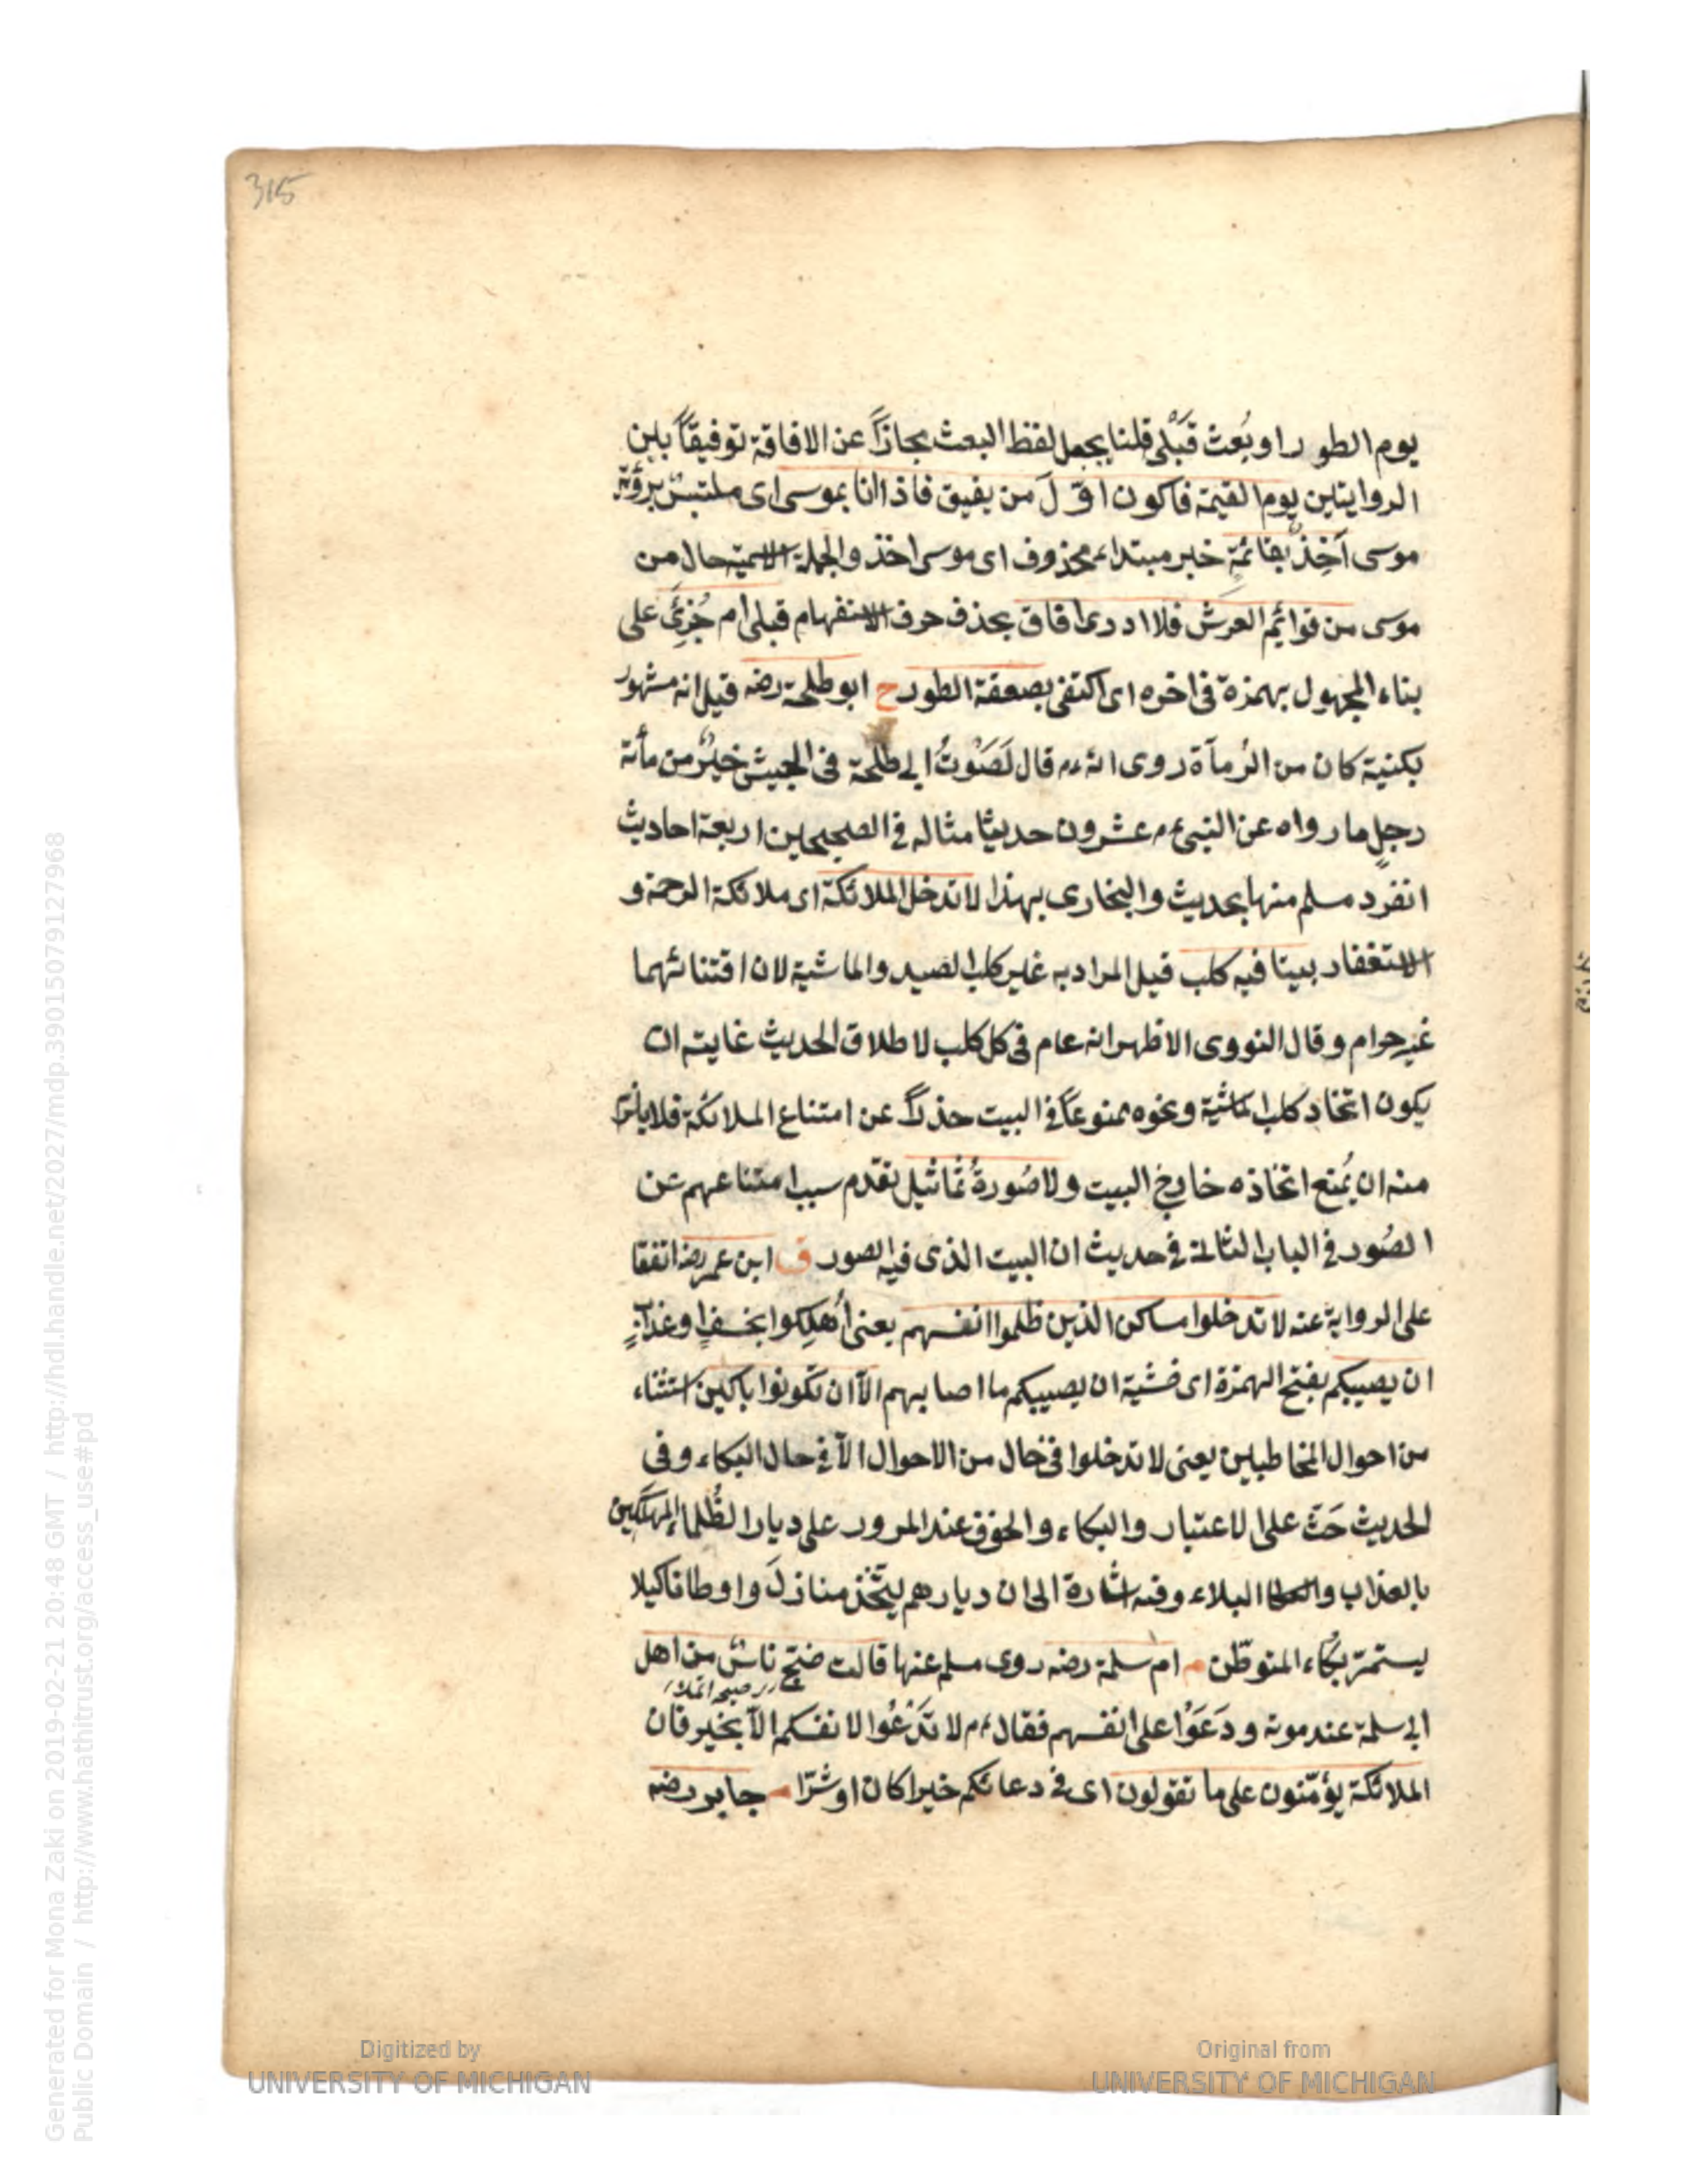 315
يوم الطور او بُعث قَبْلى قلنا يجعل لفظ البعث مجازاً عن الافاقة توفيقاً بين
الروايتين يوم القيمة فاكون اوّلَ من يفيق فاذا انا بموسى اى ملتبسٌ برؤية
موسى آخِذٌ بقائمةٍ خبر مبتداء محذوف اى موسى اخذ والجملة الاسمية حال من
موسى من قوائِم العرش فلا ادرى افاق بحذف حرف الاستفهام قبلى ام جُزِئَ على
بناء المجهول بهمزة فى اخره اى اكتفى بصعقة الطور خ ابو طلحة رضه قيل انه مشهور
بكنية كان من الرُماة روى انه ءم قال لَصَوْتُ ابى طلحة فى الجيش خيرٌ من مأة
رجلٍ ما رواه عن النبى ءم عشرون حديثا مثاله فى الصحيحين اربعة احاديث
انفرد مسلم منها بحديث والبخارى بهذا لا تدخل الملائكة اى ملائكة الرحمة و
الاستغفار بيتا فيه كلب قيل المراد به غير كلب الصيد والماشية لان اقتنائهما
غير حرام وقال النووى الاظهر انه عام فى كل كلب لاطلاق الحديث غايته ان
يكون اتخاد كلب الماشية ونحوه ممنوعاً فى البيت حذراً عن امتناع الملائكة فلا يلزم
منه ان يُمنع اتخاذه خارج البيت ولا صُورةُ تماثيل تقدم سبب امتناعهم عن
الصُور فى الباب الثالث فى حديث ان البيت الذى فيه الصور ق ابن عمر رضه اتفقا
على الرواية عنه لا تدخلوا مساكن الذين ظلموا انفسهم يعنى أُهلِكوا بخسفٍ او عذابٍ
ان يصيبكم بفتح الهمزة اى خشية ان يصيبكم ما اصابهم الاّ ان تكونوا باكين استثناء
من احوال المخاطبين يعنى لا تدخلوا فى حال من الاحوال الاّ فى حال البكاء وفى
الحديث حَثّ على الاعتبار والبكاء والخوف عند المرور على ديار الظُلماء المهلَكين
بالعذاب والبلاء وفيه اشارة الى ان ديارهم لا يتّخذ منازلَ واوطانا كيلا
يستمرّ بكاء المتوطّن م ام سلمة رضه روى مسلم عنها قالت ضجّ ناسٌ من اهل
ابى سلمة عند موته ودَعَوْا على انفسهم فقال ءم لا تَدْعُوا لانفسكم الاّ بخير فان
الملائكة يؤمّنون على ما تقولون اى فى دعائكم خيرا كان او شرّا م جابر رضه
Digitized by
UNIVERSITY OF MICHIGAN
Original from
UNIVERSITY OF MICHIGAN
Generated for Mona Zaki on 2019-02-21 20:48 GMT / http://hdl.handle.net/2027/mdp.39015079127968
Public Domain / http://www.hathitrust.org/access_use#pd